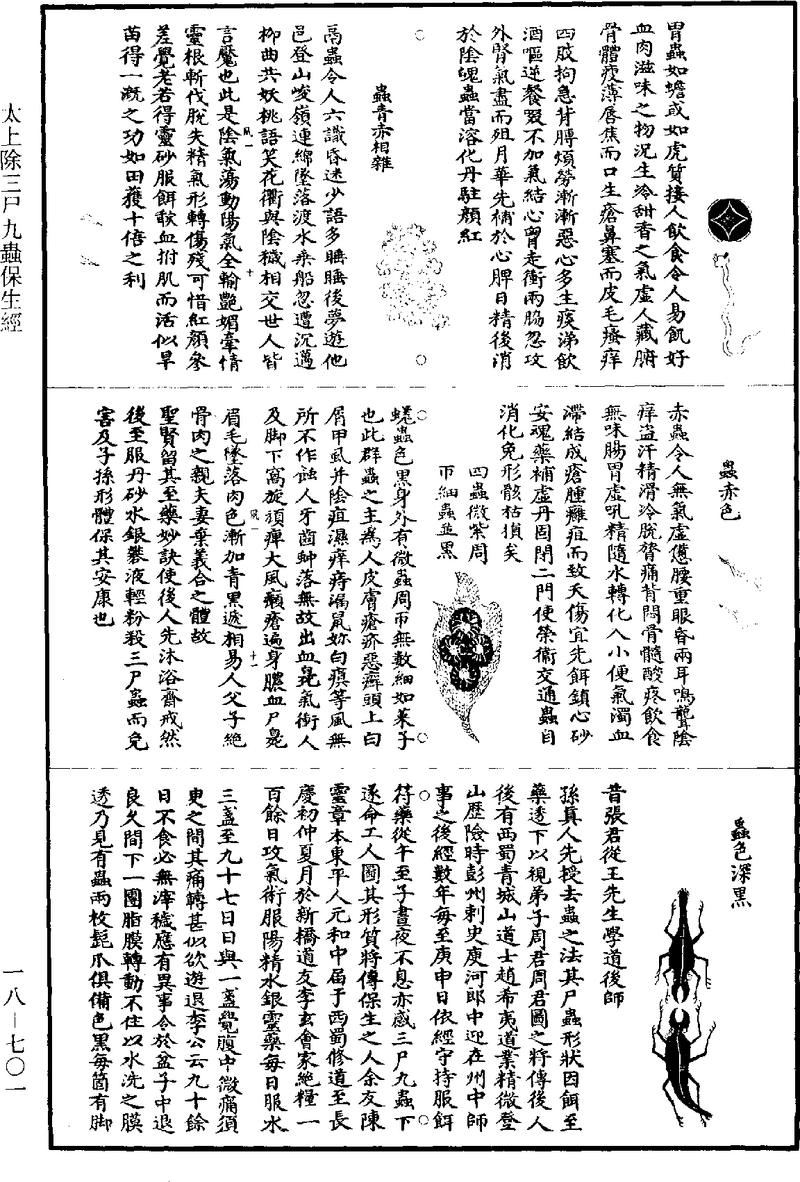 太上除三尸九蟲保生經
一八—七〇一
胃蟲如蟾或如虎質接人飲食令人易飢好
血肉滋味之物況生冷甜香之氣虛人藏腑
骨體瘦薄唇焦而口生瘡鼻塞而皮毛瘙痒
四肢拘急背膊煩勞漸漸惡心多生痰涕飲
酒嘔逆餐啜不加氣結心胷走衝兩脇忽攻
外腎氣盡而殂月華先補於心脾日精後消
於陰魄蟲當溶化丹駐顏紅
蟲青赤相雜
鬲蟲令人六識昏迷少語多睡睡後夢遊他
邑登山峻嶺連綿墜落渡水乘船忽遭沉邁
柳曲共妖桃語笑花衢與陰穢相交世人皆
言魘也此是陰氣蕩動陽氣全輸艷媚牽情
靈根斬伐脫失精氣形轉傷殘可惜紅顏參
差覺老若得靈砂服餌歃血拊肌而活似旱
苗得一溉之功如田穫十倍之利
蟲赤色
赤蟲令人無氣虛憊腰重眼昏兩耳鳴聾陰
痒盜汗精滑冷脫膂痛背悶骨髓酸疼飲食
無味腸胃虛吼精隨水轉化入小便氣濁血
滯結成瘡腫癰疽而致夭傷宜先餌鎮心砂
安魂藥補虛丹固閉二門使榮衛交通蟲自
消化免形骸枯損矣
四蟲微紫周
帀細蟲並黑
蜣蟲色黑身外有微蟲周帀無數細如菜子
也此群蟲之主為人皮膚瘡疥惡癬頭上白
屑甲虱并陰疽濕痒痔漏鼠妳白瘼等風無
所不作蝕人牙齒蚛落無故出血臰氣衝人
及脚下窩旋頑痺大風癩瘡遍身膿血尸臰
眉毛墜落肉色漸加青黑遞相易人父子絶
骨肉之親夫妻棄義合之體故
聖賢留其至藥妙訣使後人先沐浴齋戒然
後至服丹砂水銀礬液輕粉殺三尸蟲而免
害及子孫形體保其安康也
蟲色深黑
昔張君從王先生學道後師
孫真人先授去蟲之法其尸蟲形狀因餌至
藥透下以視弟子周君周君圖之將傳後人
後有西蜀青城山道士趙希夷道業精微登
山歷險時彭州刺史庾河郎中迎在州中師
事之後經數年每至庚申日依經守持服餌
符藥從午至子晝夜不息亦感三尸九蟲下
遂命工人圖其形質將傳保生之人余友陳
靈章本東平人元和中届于西蜀修道至長
慶初仲夏月於新橋道友李玄會家絶糧一
百餘日攻氣術服陽精水銀靈藥每日服水
三盞至九十七日日與一盞覺腹中微痛須
臾之間其痛轉甚似欲遊退李公云九十餘
日不食必無滓穢應有異事令於盆子中退
良久間下一團脂膜轉動不住以水洗之膜
透乃見有蟲兩枚髭爪俱備色黑每箇有脚